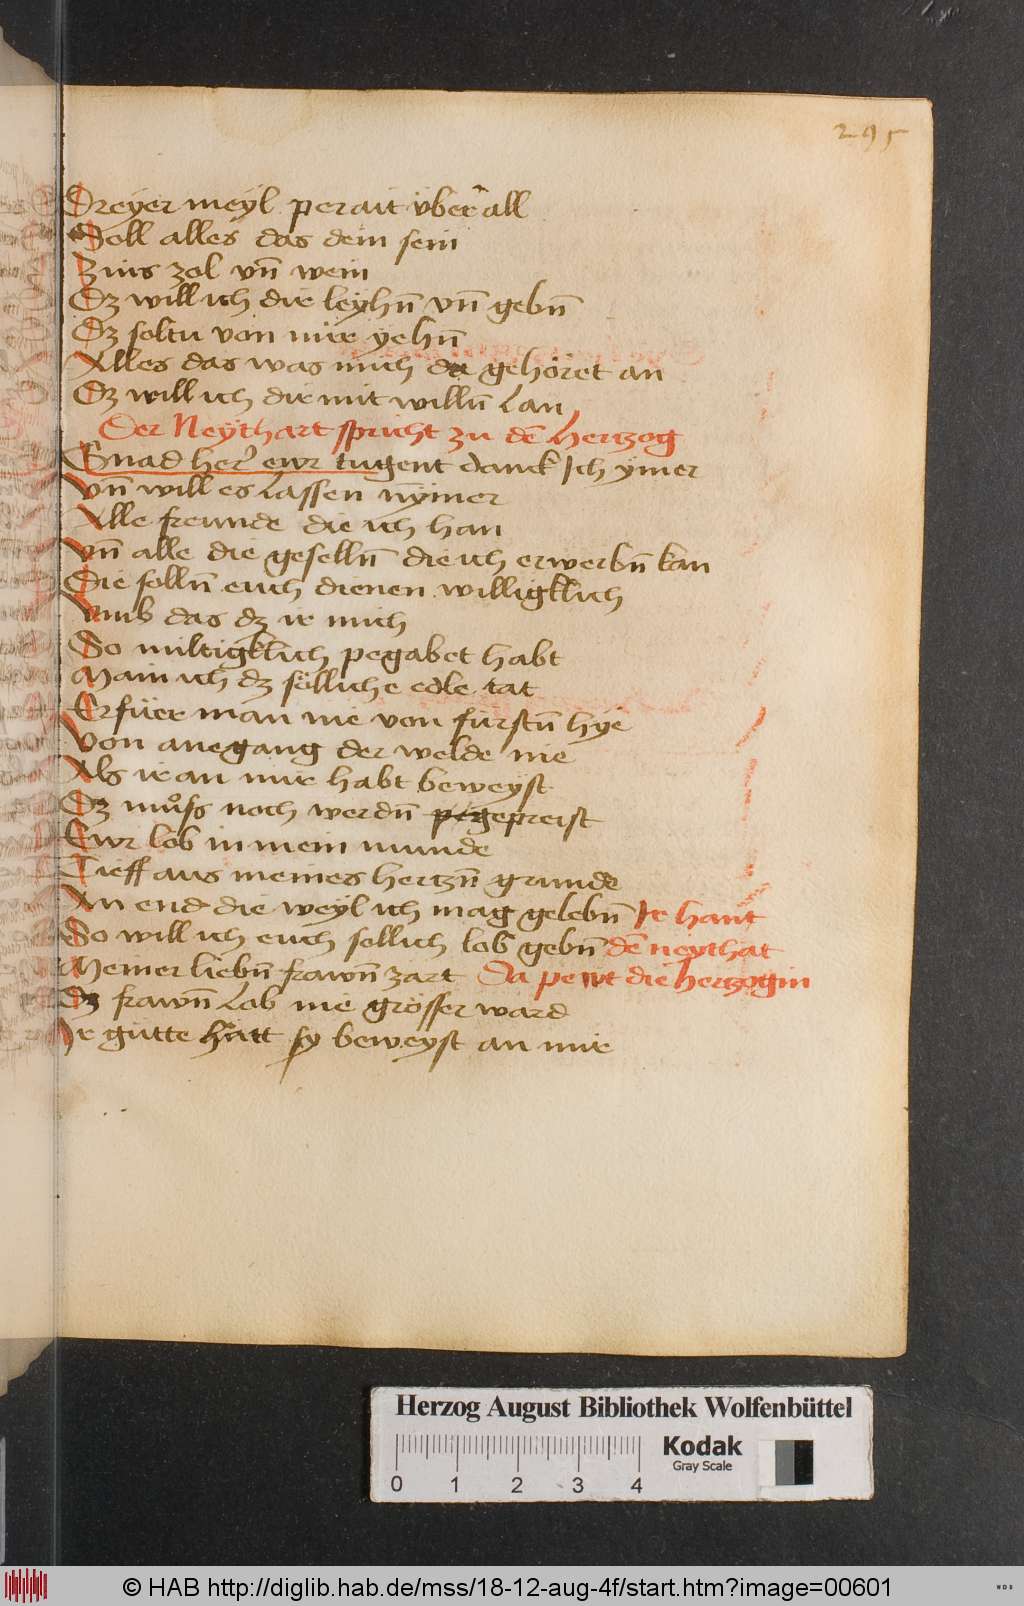 295
Dreyer meyl perait v̈ber all
Soll alles das dein sein
Zins zol vn̄ wein
Dz will ich dir leyhn̄ vn̄ gebn̄
Dz soltu von mir yehn̄
Alles das was mich da gehöret an
Dz will ich dir mit willn̄ lan
Der Neythart spricht zu dē hertzog
Gnad her ewr tugent danck ich ymer
Vn̄ will es lassen nymer
Alle freunde die ich han
Vn̄ alle die geselln̄ die ich erwerbn̄ kan
Die solln̄ euch dienen willigklich
Vmb das dz ir mich
So miltigklich pegabet habt
Main ich dz söllliche edle tat
Erfüer man nie von fürstn̄ hye
Von anegang der welde nie
Als ir an mir habt beweyst
Dz muͦss noch werdn̄ gepreist
Ewr lob in mein munde
Tieff aus meines hertzn̄ grunde
An end die weyl ich mag gelebn̄ Ir hant
So will ich euch sollich lob gebn̄ dē neythat
Meiner liebn̄ frawn̄ zart Da pewt die hertzogin
Dz frawn̄ lob nie grösser ward
Ir gütte hatt sy beweyst an mir
Herzog August Bibliothek Wolfenbüttel
Kodak
Gray Scale
0 1 2 3 4
© HAB http://diglib.hab.de/mss/18-12-aug-4f/start.htm?image=00601